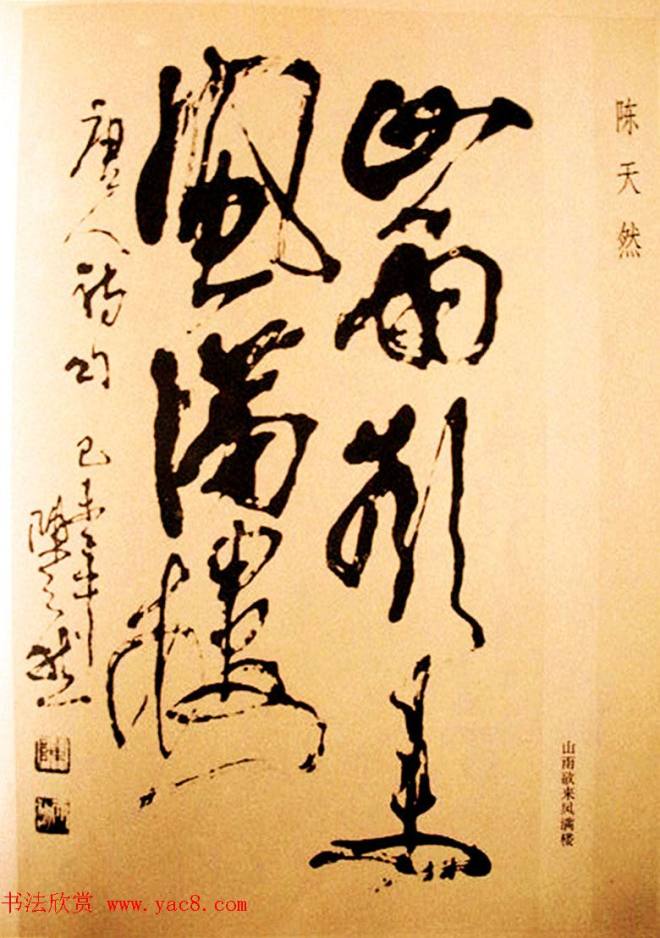 陈天然
山雨欲来
風滿樓
唐人诗句 己未年
陳天然
山雨欲来风满楼
书法欣赏 www.yac8.com